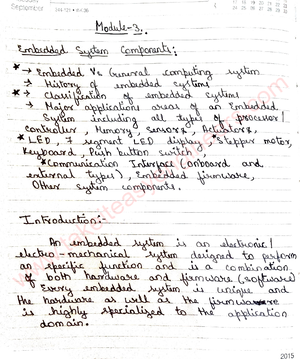 September
Module-3.
Embedded System Components:
* → Embedded Vs General computing system
→ History of embedded systems
* → Classification of embedded systems
→ Major applications areas of an Embedded
System including all types of processor/
controller, Memory, Sensors, Actuators,
* LED, 7 segment LED display, * Stepper motor,
Keyboard, Push button switch,
* Communication Interface (onboard and
external types), Embedded firmware,
Other system components.
Introduction:-
An embedded system is an electronic/
electro-mechanical system designed to perform
an specific function and is a combination
of both hardware and firmware (software)
Every embedded system is unique and
the hardware as well as the firmware
is highly specialized to the application
domain.
2015